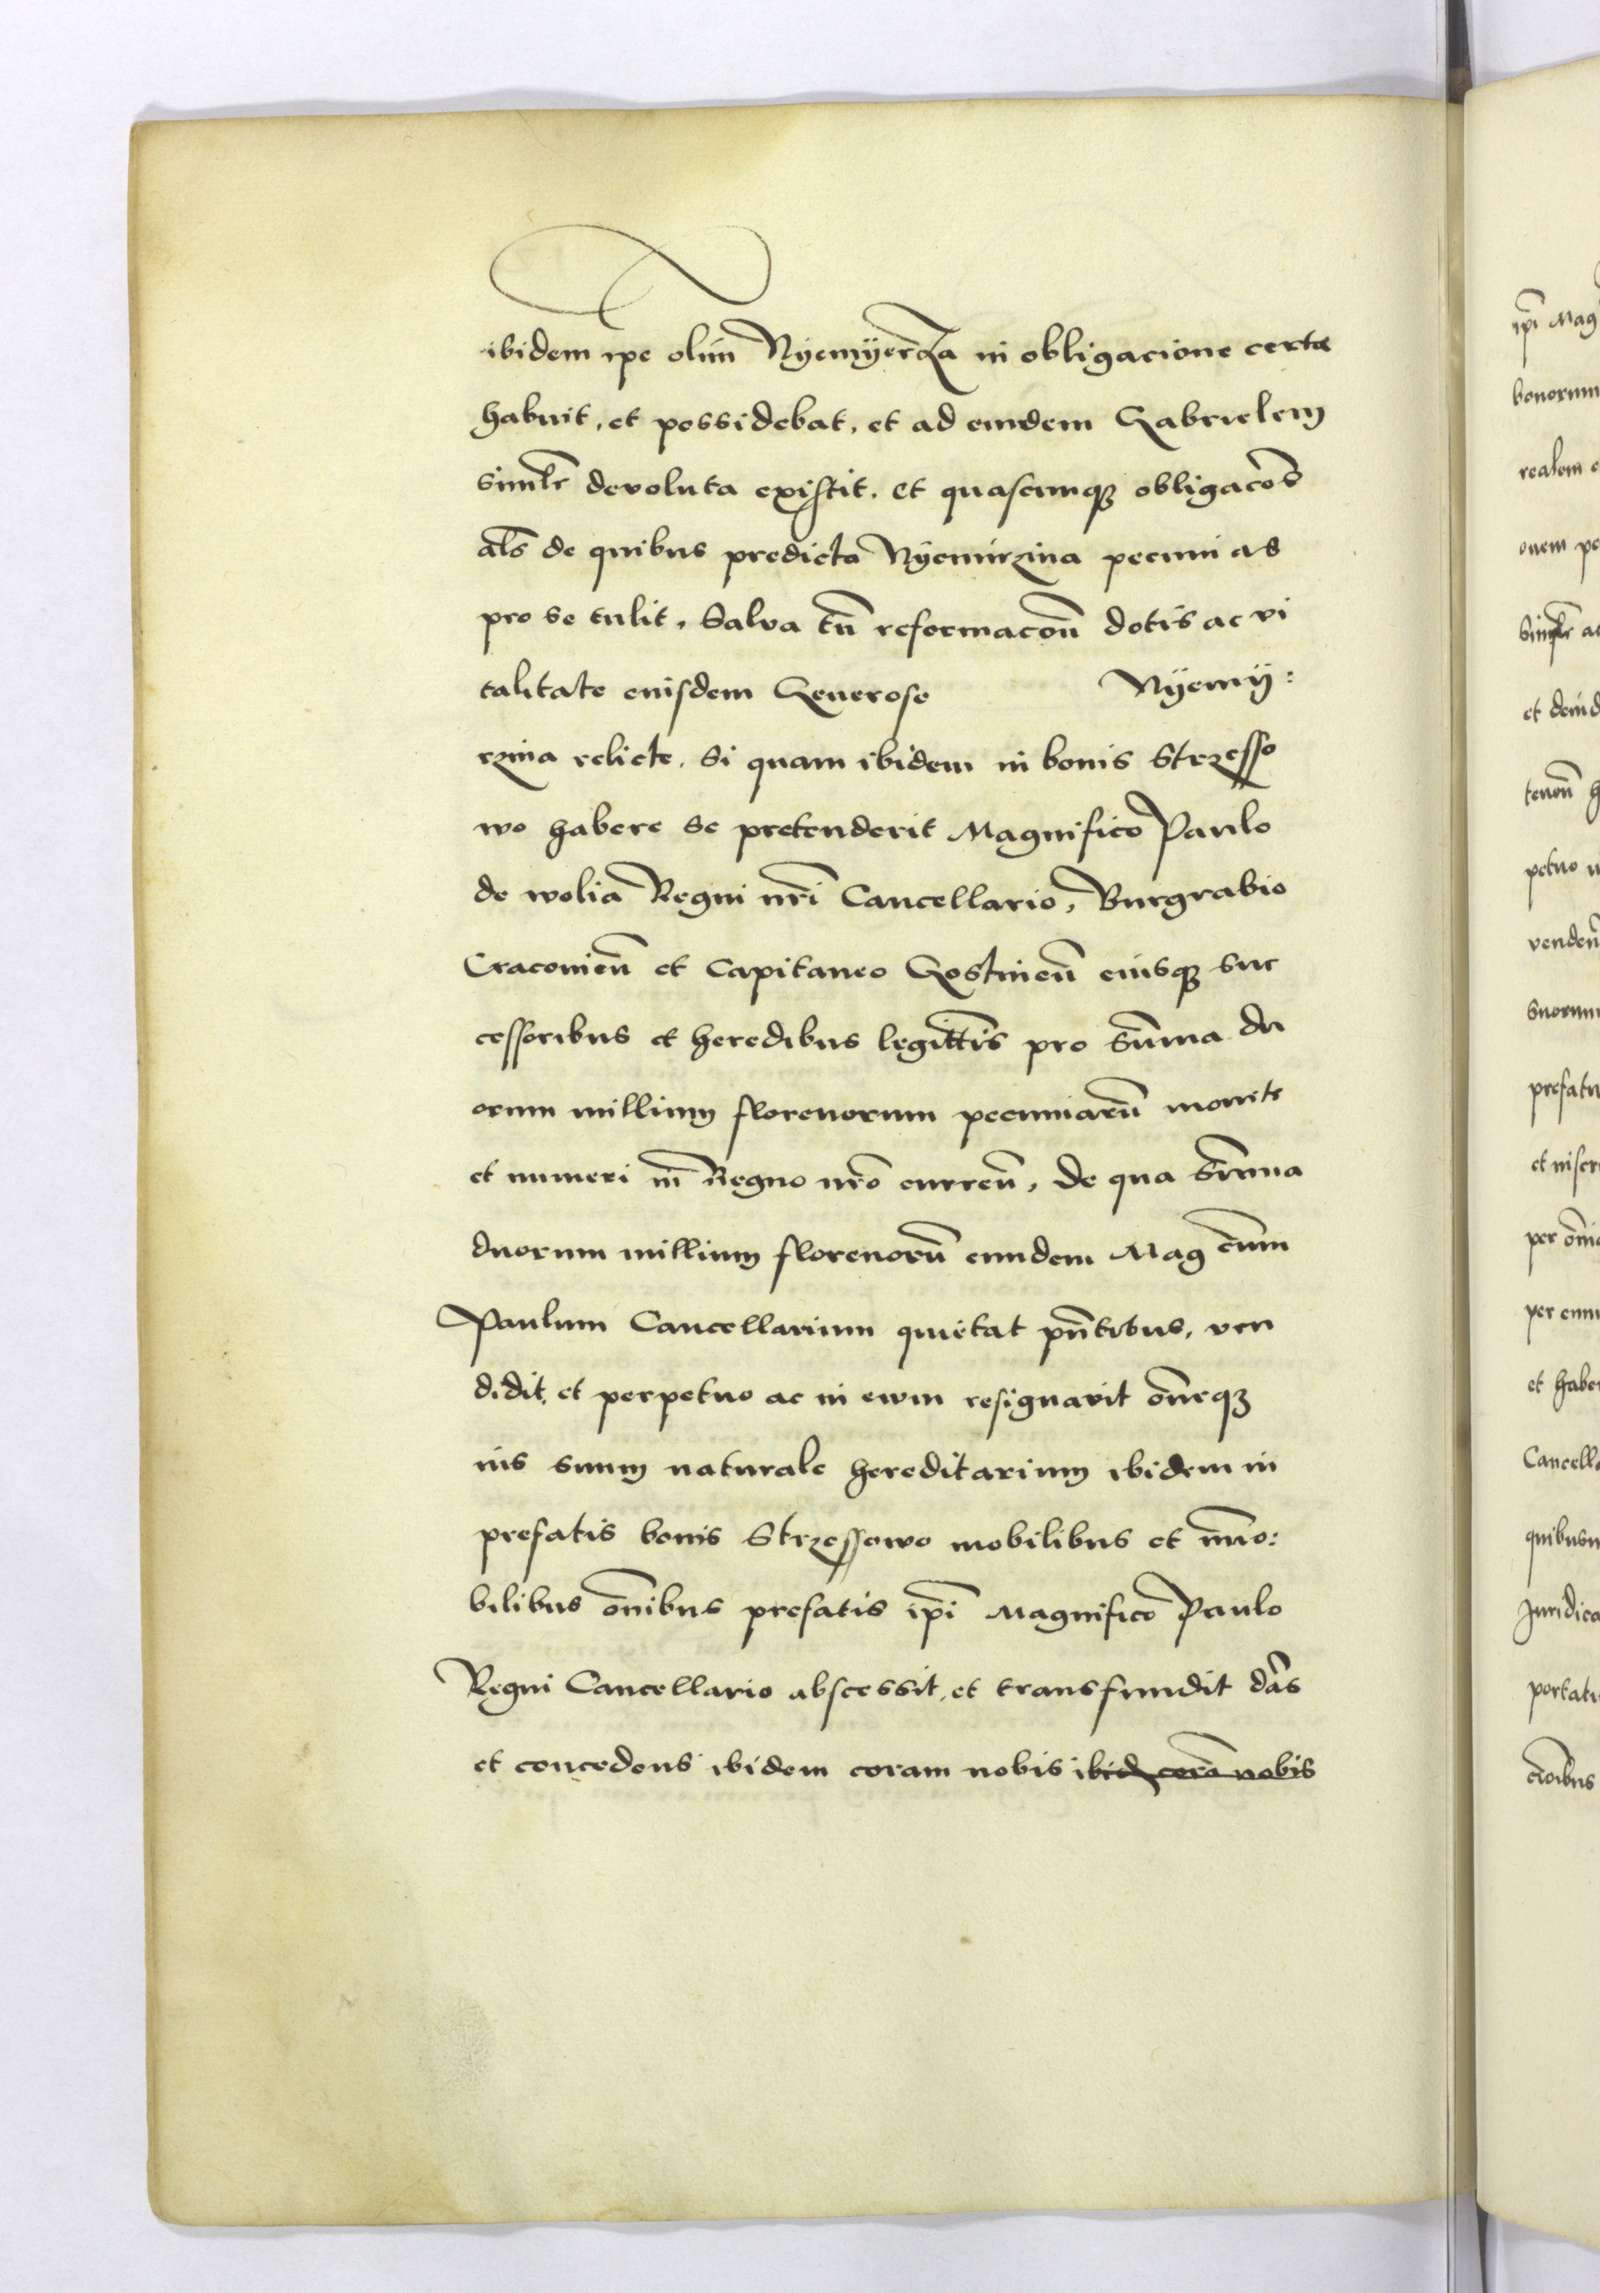 ibidem ipe olim Nyemyerza in obligacione certa
habuit, et possidebat, et ad eundem Gabrielem
simlr devoluta existit. et quascunq3 obligacoēs
als de quibus predicta Nyemirzina pecuni as
pro se tulit, Salva tn̄ reformacoū dotis ac vi
talitate eiusdem Generose Nyemy:
rzina relicte. Si quam ibidem in bonis Strzesso
wo habere se pretenderit Magnifico Paulo
de wolia Regni nr̄i Cancellario, Burgrabio
Cracouieñ et Capitaneo Gostineñ eiusq3 suc
cessoribus et heredibus legittīs pro sūma du
orum millium florenorum pecuniarū monete
et numeri in Regno nr̄o curreñ, de qua sūmma
duorum millium florenorū eundem Mag cum
Paulum Cancellarium quietat pn̄tibus, ven
didit, et perpetuo ac in ewm resignavit om̄eq3
ius suum naturale hereditarium ibidem in
prefatis bonis Strzessowo mobilibus et īmo:
bilibus om̄ibus prefatis ip̄i Magnifico Paulo
Regni Cancellario abscessit, et transfundit dās
et concedens ibidem coram nobis ibid corā nobis
ip̄i Mag
bonorum
realem e
onem po
Simplr ac
et deind
tenoū h
petuo
vendeñ
suorum
prefatu
et inscri
per om̄i
per eun
et habe
Cancella
quibusu
Juridica
portati